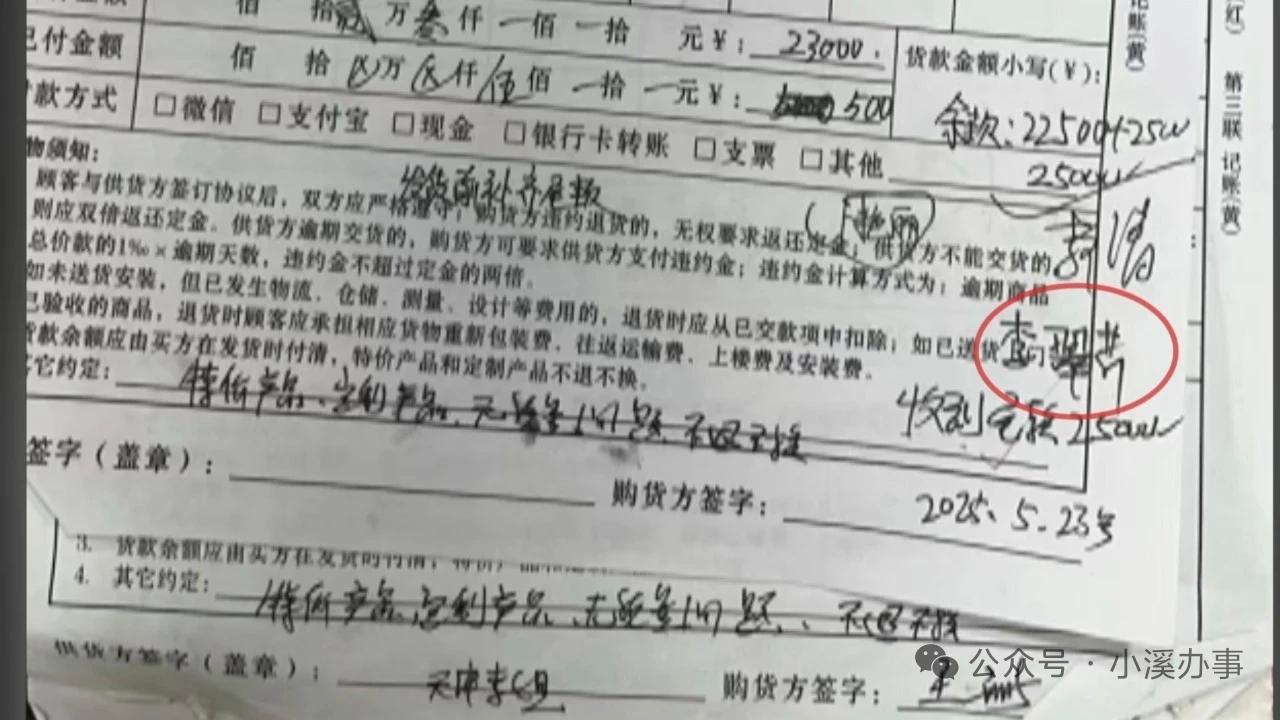 佰 拾贰万叁仟一佰一拾 元¥:23000.
已付金额 佰 拾 万 仟伍佰一拾一元¥: 500
货款金额小写(¥):
余款:22500+2500
25000
付款方式 □微信 □支付宝 □现金 □银行卡转账 □支票 □其他
物须知:
发货前补齐尾款
顾客与供货方签订协议后,双方应严格遵守;购货方违约退货的,无权要求返还定金;供货方不能交货的,
则应双倍返还定金。供货方逾期交货的,购货方可要求供货方支付违约金;违约金计算方式为:逾期商品
总价款的1‰×逾期天数,违约金不超过定金的两倍。
如未送货安装,但已发生物流、仓储、测量、设计等费用的,退货时应从已交款项中扣除;如已送货
已验收的商品,退货时顾客应承担相应货物重新包装费、往返运输费、上楼费及安装费。
货款余额应由买方在发货时付清,特价产品和定制产品不退不换。
其它约定:特价产品、定制产品、无质量问题 不退不换
收到
2500
签字(盖章):
购货方签字:
2025.5.23号
3. 货款余额应由买方在发货时付清,
4. 其它约定:特价产品、定制产品、无质量问题、不退不换
供货方签字(盖章):
购货方签字:王
记账(黄)
红)
第三联 记账(黄)
公众号·小溪办事